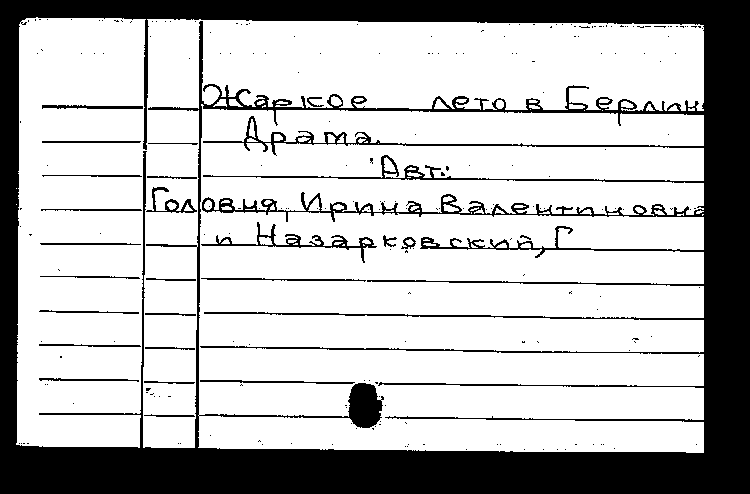 Жаркое лето в Берлин
Драма.
Авт.:
Головня, Ирина Валентиновна
и Назарковский, Г